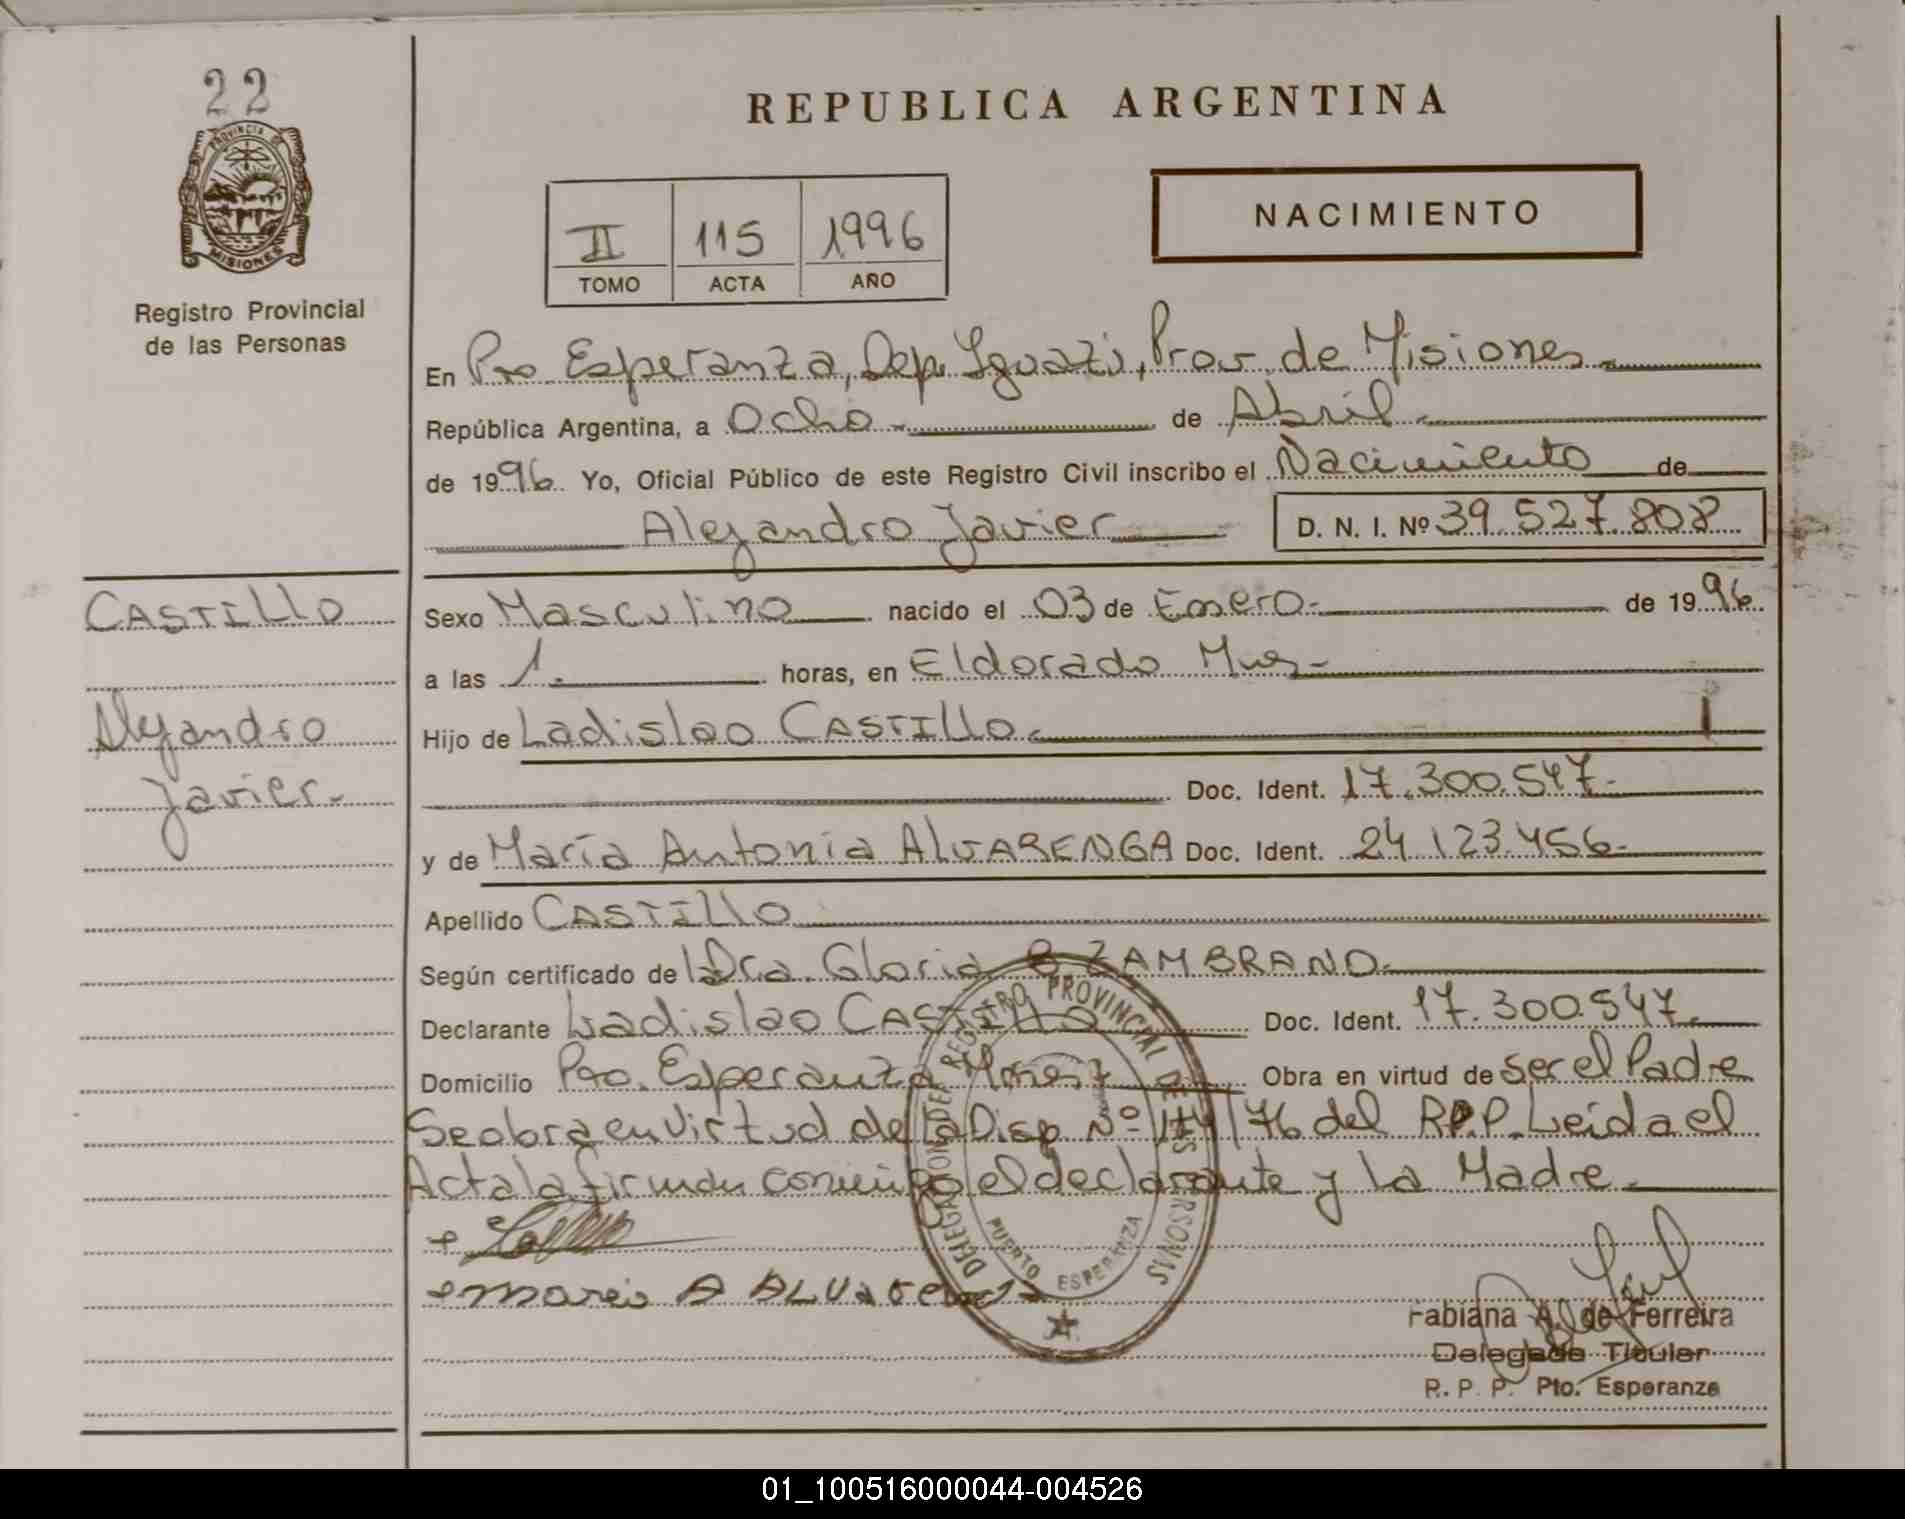 22
PROVINCIA DE
MISIONES
Registro Provincial
de las Personas
REPUBLICA ARGENTINA
II 115 1996
TOMO ACTA AÑO
NACIMIENTO
En Pto. Esperanza, Dep. Iguazú, Prov. de Misiones
República Argentina, a Ocho de Abril
de 1996. Yo, Oficial Público de este Registro Civil inscribo el Nacimiento de
Alejandro Javier D. N. I. Nº 39.527.808
CASTILLO
Alejandro
Javier
Sexo Masculino nacido el 03 de Enero de 1996.
a las 1. horas, en Eldorado Mnes
Hijo de Ladislao CASTILLO
Doc. Ident. 17.300.547
y de María Antonia ALVARENGA Doc. Ident. 24.123.456
Apellido CASTILLO
Según certificado de la Dra. Gloria B ZAMBRANO
Declarante Ladislao CASTILLO Doc. Ident. 17.300.547
Domicilio Pto. Esperanza Mnes Obra en virtud de ser el Padre
Se obra en virtud de la Disp. Nº 174/76 del R.P.P. Leida el
Acta la firman conmigo el declarante y la Madre
Maria A ALVarenga
REGISTRO PROVINCIAL DE LAS PERSONAS
DELEGACION DE
PUERTO ESPERANZA
Fabiana A. de Ferreira
Delegada Titular
R. P. P. Pto. Esperanza
01_100516000044-004526